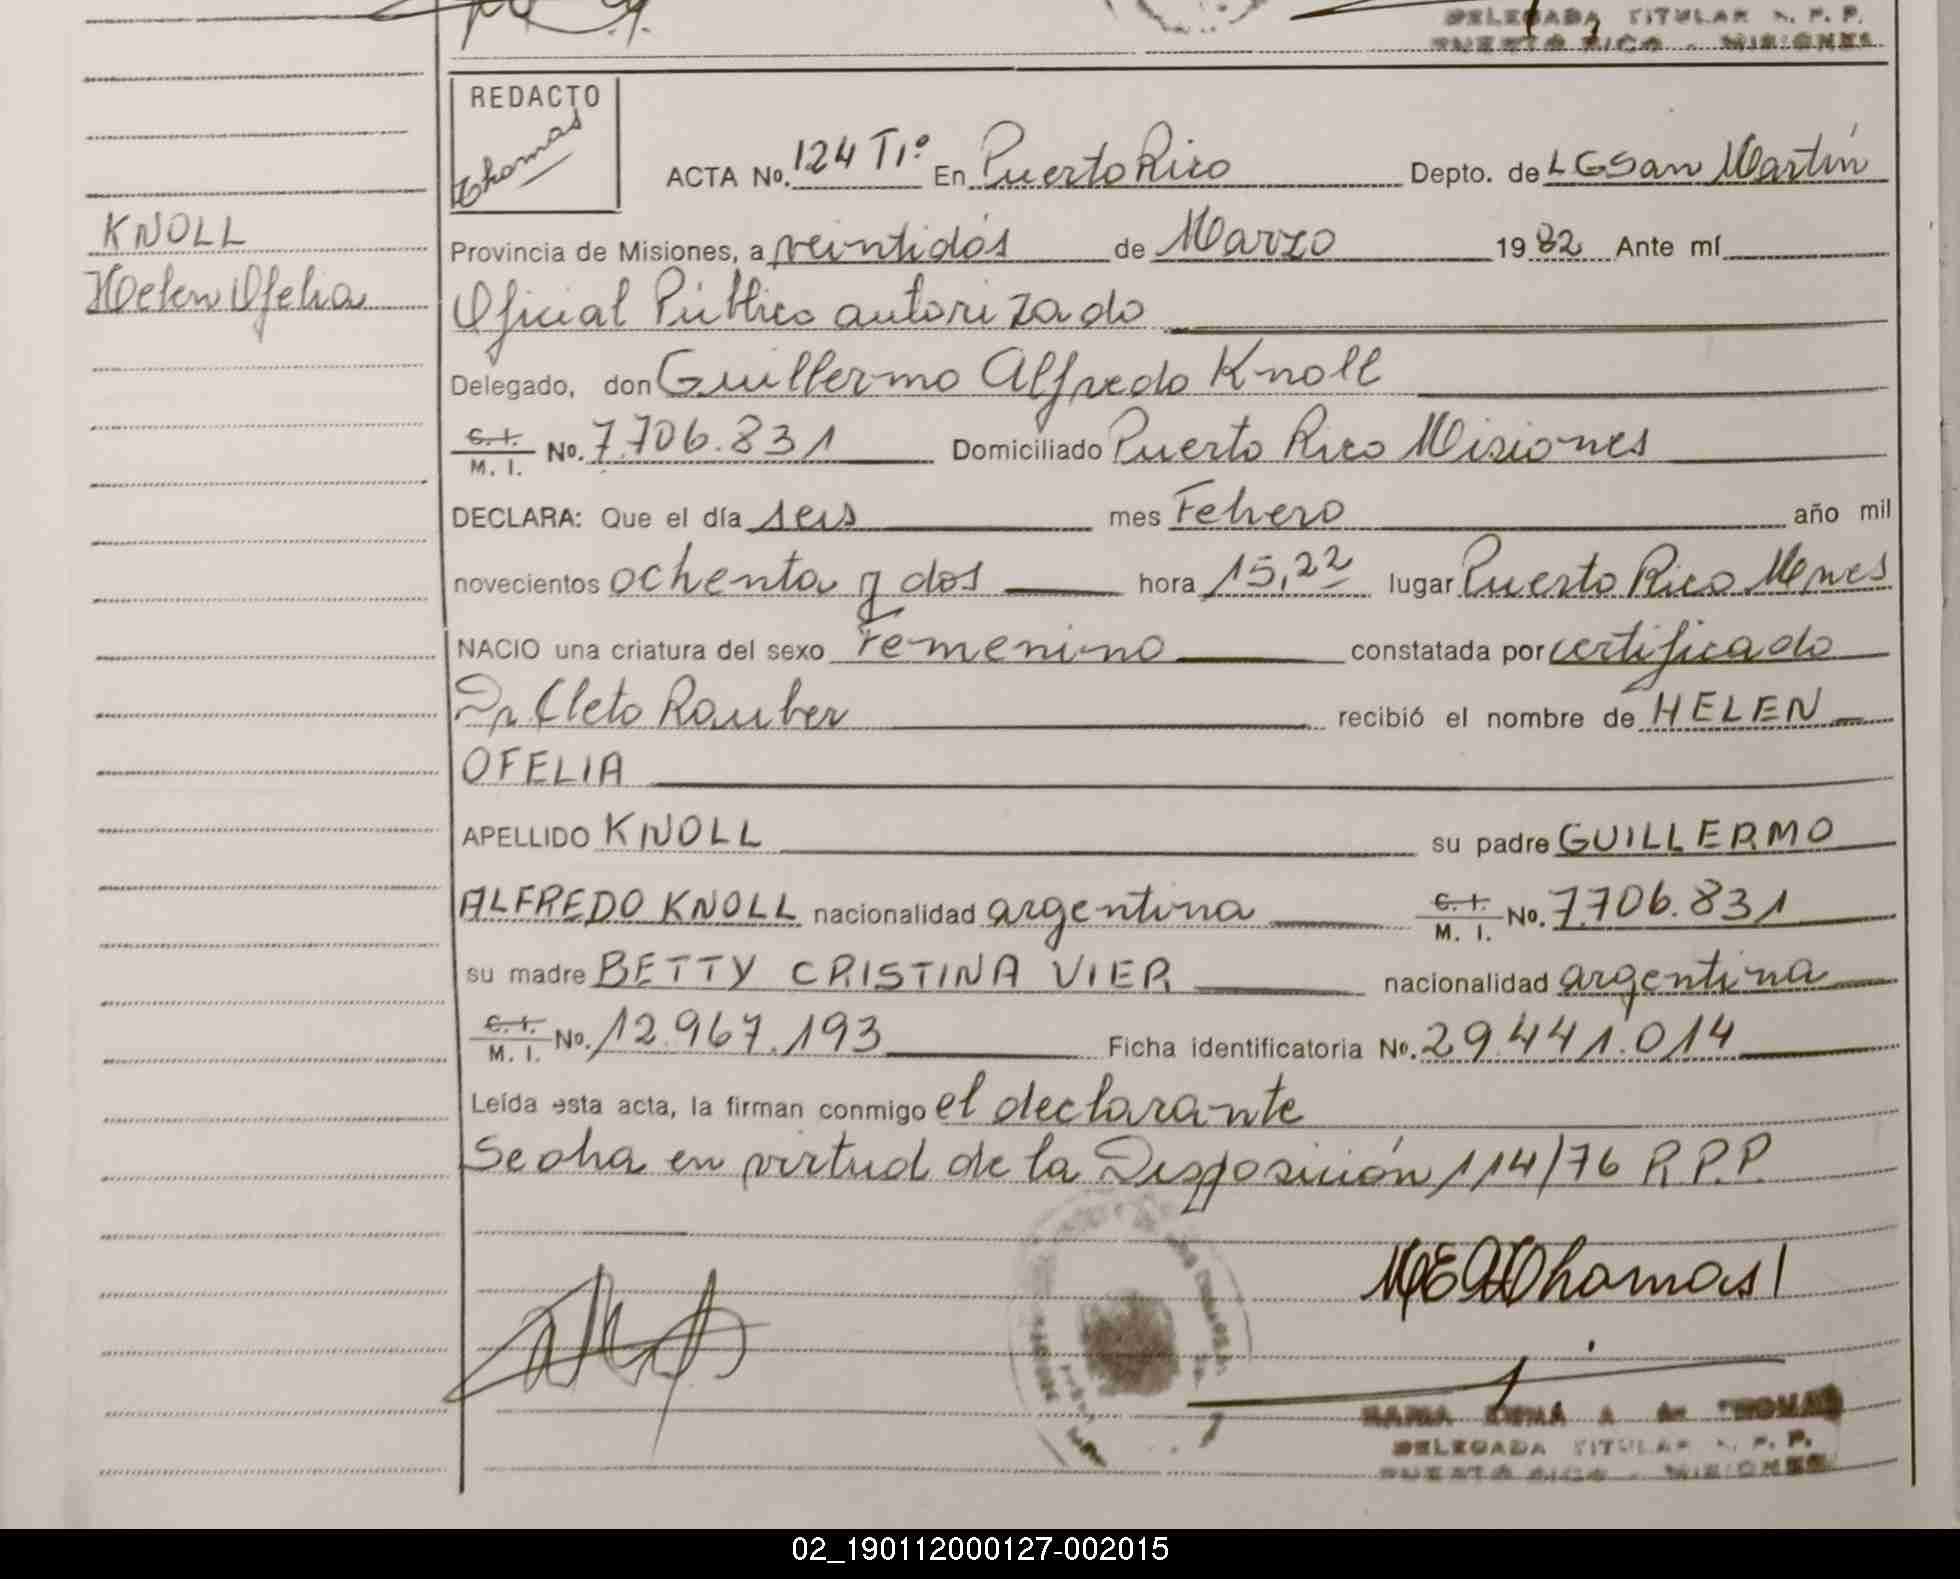 DELEGADA TITULAR R. P. P.
PUERTO RICO - MISIONES
REDACTO
Thomas
ACTA No. 124 T1º En Puerto Rico Depto. de LG San Martín
KNOLL
Helen Ofelia
Provincia de Misiones, a veintidós de Marzo 1982 Ante mí
Oficial Público autorizado
Delegado, don Guillermo Alfredo Knoll
C. I.
M. I. No. 7.706.831 Domiciliado Puerto Rico Misiones
DECLARA: Que el día seis mes Febrero año mil
novecientos ochenta y dos hora 15,22 lugar Puerto Rico Mnes
NACIO una criatura del sexo Femenino constatada por certificado
Dr Cleto Rauber recibió el nombre de HELEN
OFELIA
APELLIDO KNOLL su padre GUILLERMO
ALFREDO KNOLL nacionalidad argentina C. I.
M. I. No. 7.706.831
su madre BETTY CRISTINA VIER nacionalidad argentina
C. I.
M. I. No. 12.967.193 Ficha identificatoria No. 29.441.014
Leída esta acta, la firman conmigo el declarante
Se oha en virtud de la Disposición 114/76 R.P.P.
Thomas
MARIA A de THOMAS
DELEGADA TITULAR R. P. P.
PUERTO RICO - MISIONES
02_190112000127-002015